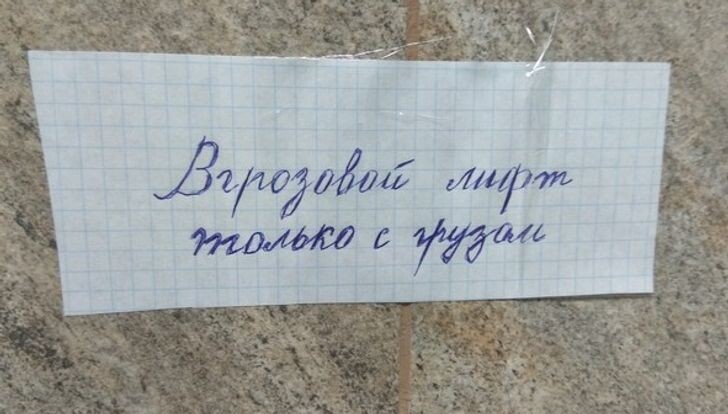 Вгрозовой лифт
только с грузом